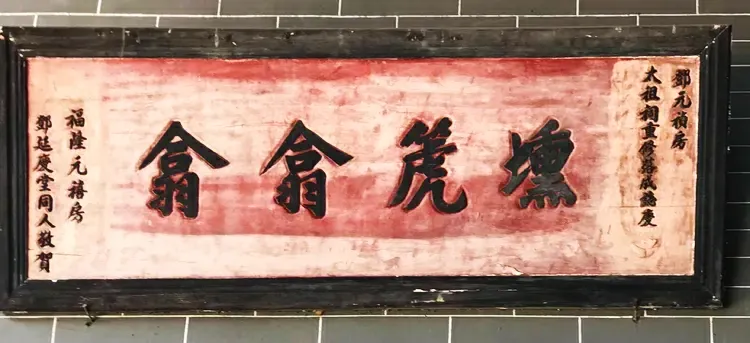 鄧元禎房
太祖祠重修落成誌慶
壎箎翕翕
福隆元禧房
鄧廷慶堂同人敬賀